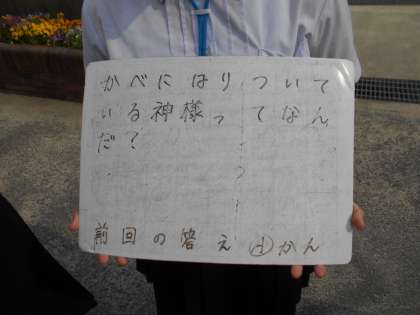 かべにはりついて
いる神様ってなん
だ?
前回の答え みかん